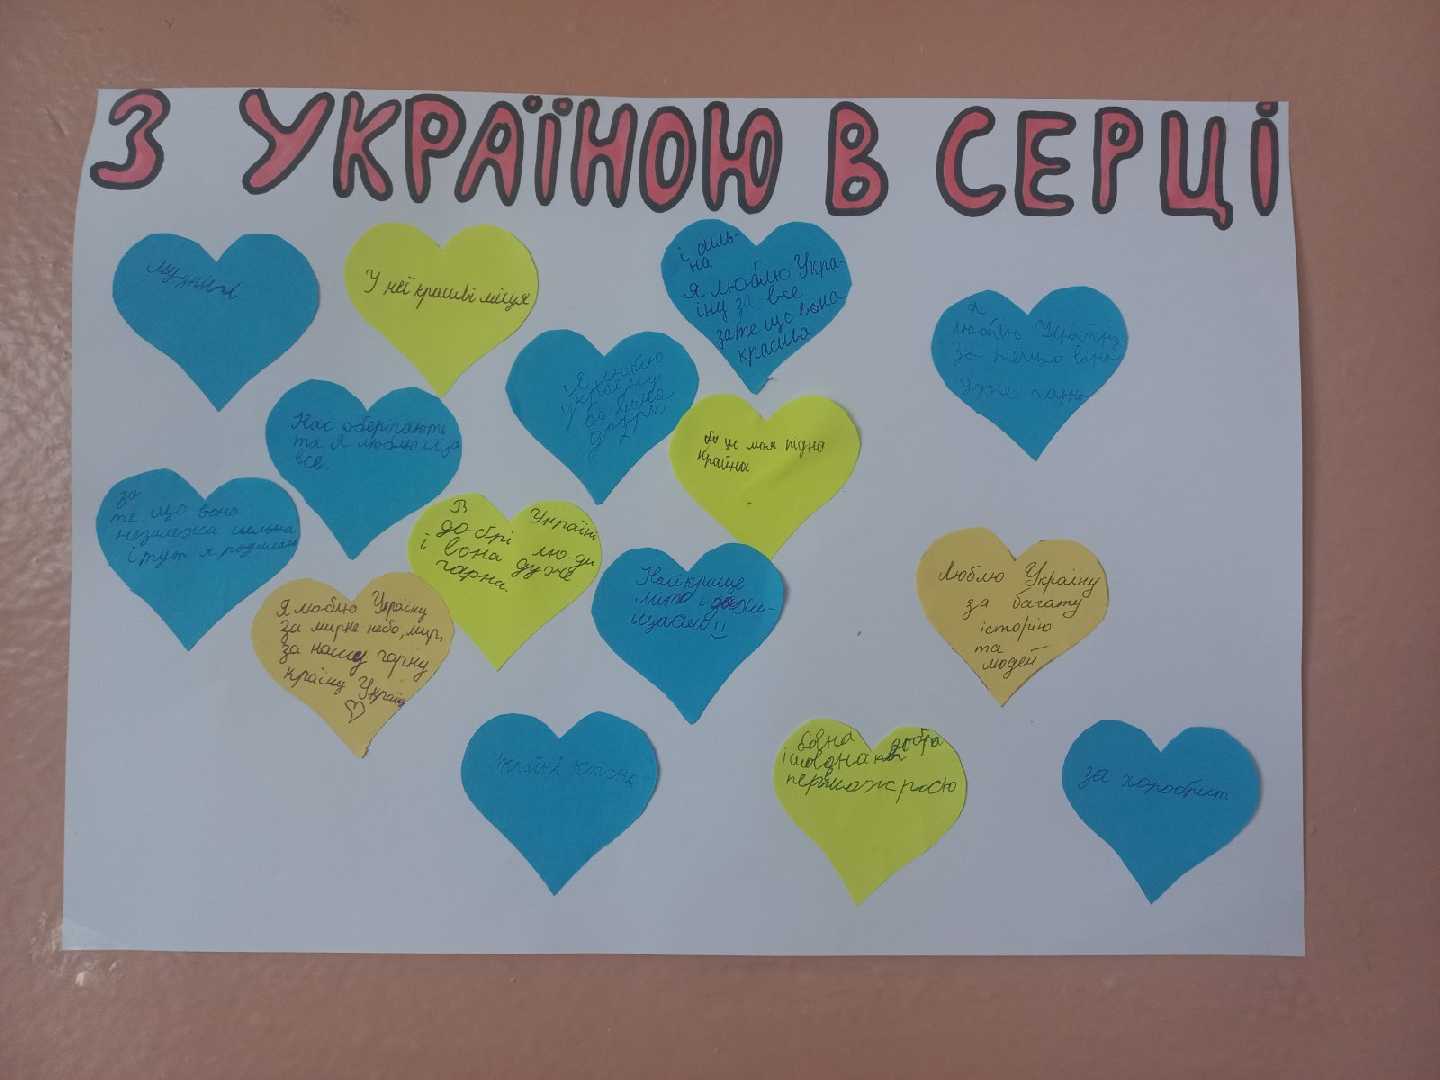 З УКРАЇНОЮ В СЕРЦІ
У неї красиві місця
і силь-
на
Я люблю Укра-
їну за все
за те що вона
красива
Я
люблю Україну
за те що вона
дуже гарна
Я люблю
Україну
бо вона
Нас оберігають
та я люблю її за
все.
бо це моя рідна
країна
за
те що вона
незалежна сильна
і тут я родилась
В Україні
добрі люди
і вона дуже
гарна.
Найкраще
місто і
Люблю Україну
за багату
історію
та
людей
Я люблю Україну
за мирне небо, мир,
за нашу гарну
країну Україна
Україна
добра
і
за хоробрість